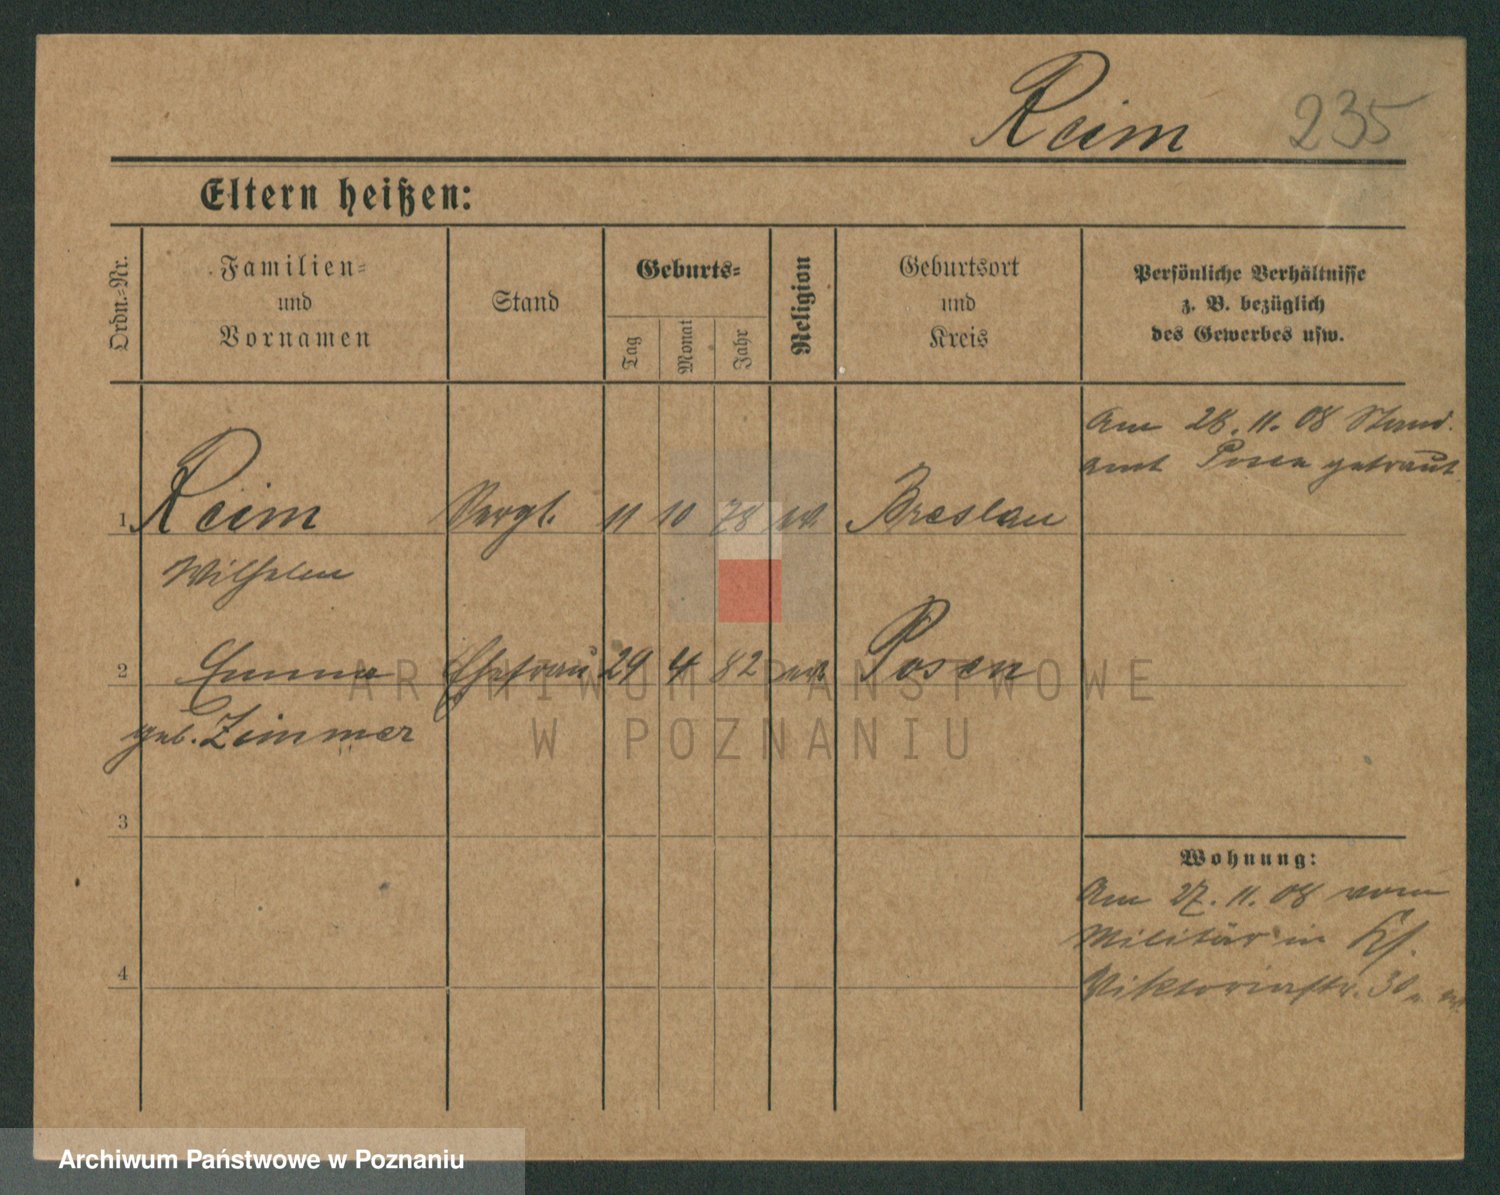 Reim 235
Eltern heißen:
Ordn.-Nr.
Familien-
und
Vornamen
Stand
Geburts-
Tag
Monat
Jahr
Religion
Geburtsort
und
Kreis
Persönliche Verhältnisse
z. B. bezüglich
des Gewerbes usw.
Am 28. 11. 08 Stand.
amt Posen getraut.
1 Reim Sergt. 11 10 78 ev. Breslau
Wilhelm
2 Emma Ehefrau 29 4 82 Posen
geb. Zimmer
3
4
Wohnung:
Am 27. 11. 08 vom
Militär in
Viktoriastr. 30
ARCHIWUM PAŃSTWOWE
W POZNANIU
Archiwum Państwowe w Poznaniu